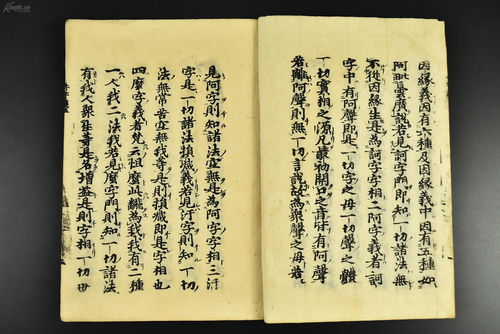 因縁義因有六種及因縁義中因有五種如
阿毗曇廣説若見訶字門即知一切諸法無
不從因縁生是為訶字字相二阿字義者訶
字中有阿聲即是一切字之母一切聲之體
一切實相之源凡最初開口之音皆有阿聲
若離阿聲則無一切言説故為衆聲之母若
見阿字則知諸法空無是為阿字字相三汙
字是一切諸法損減義若見汙字則知一切
法無常苦空無我等是則損減即是字相也
四麼字義者梵云怛麼此翻為我我有二種
一人我二法我若見麼字門則知一切諸法
有我人衆生等是名增益是則字相一切世